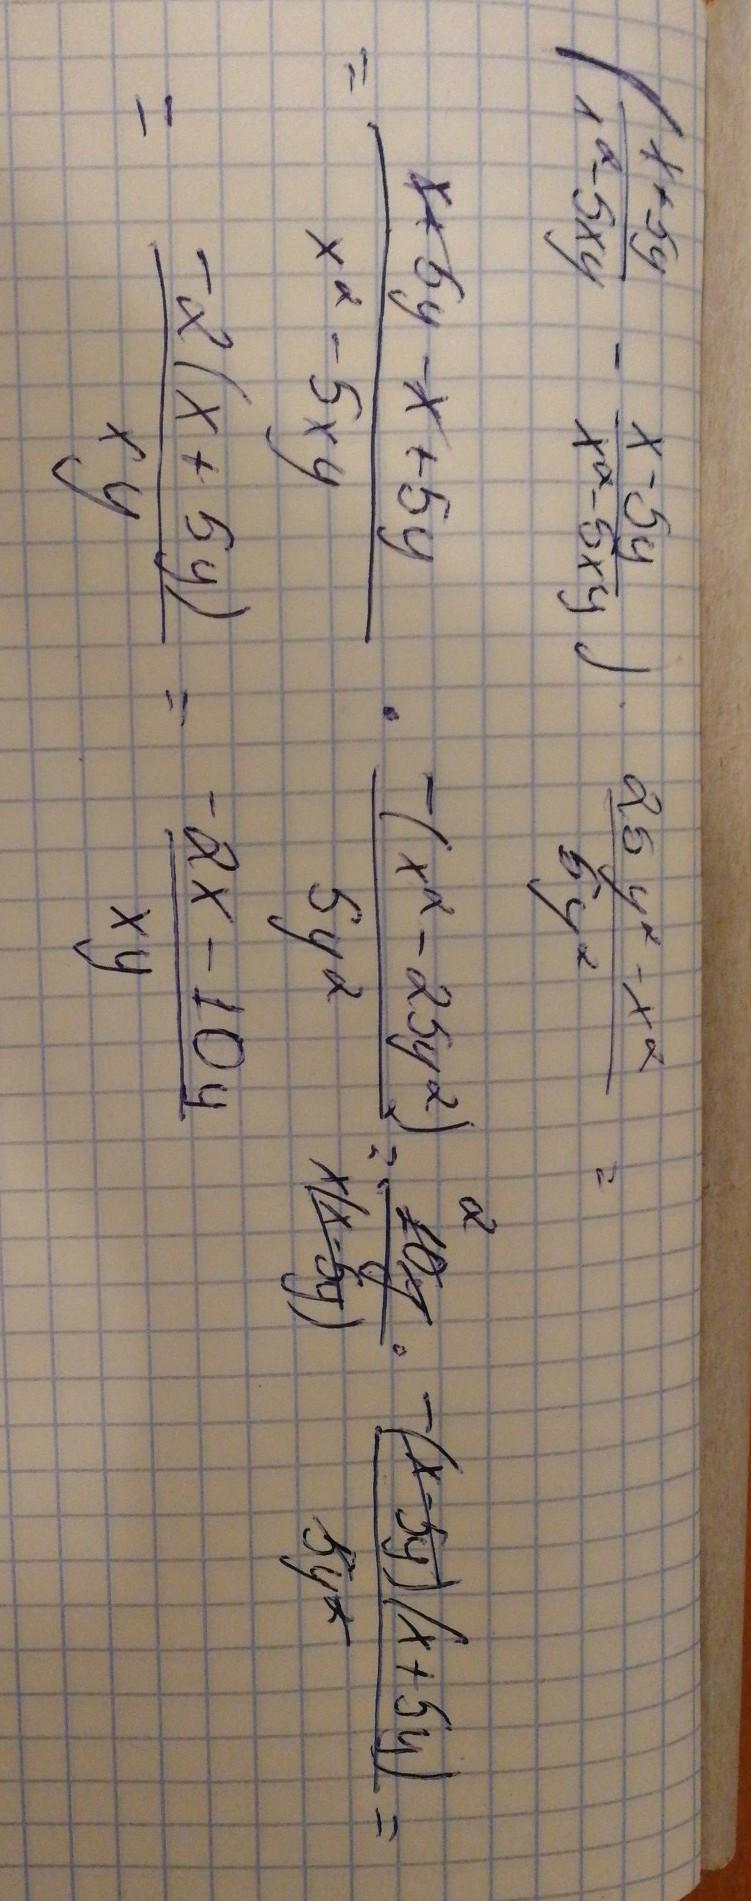 ( (x+5y)/(x²-5xy) - (x-5y)/(x²-5xy) ) · (25y²-x²)/(5y²) =
= (x+5y-x+5y)/(x²-5xy) · (-(x²-25y²))/(5y²) = (10y)/(x(x-5y)) · (-(x-5y)(x+5y))/(5y²) =
= (-2(x+5y))/(xy) = (-2x-10y)/(xy)